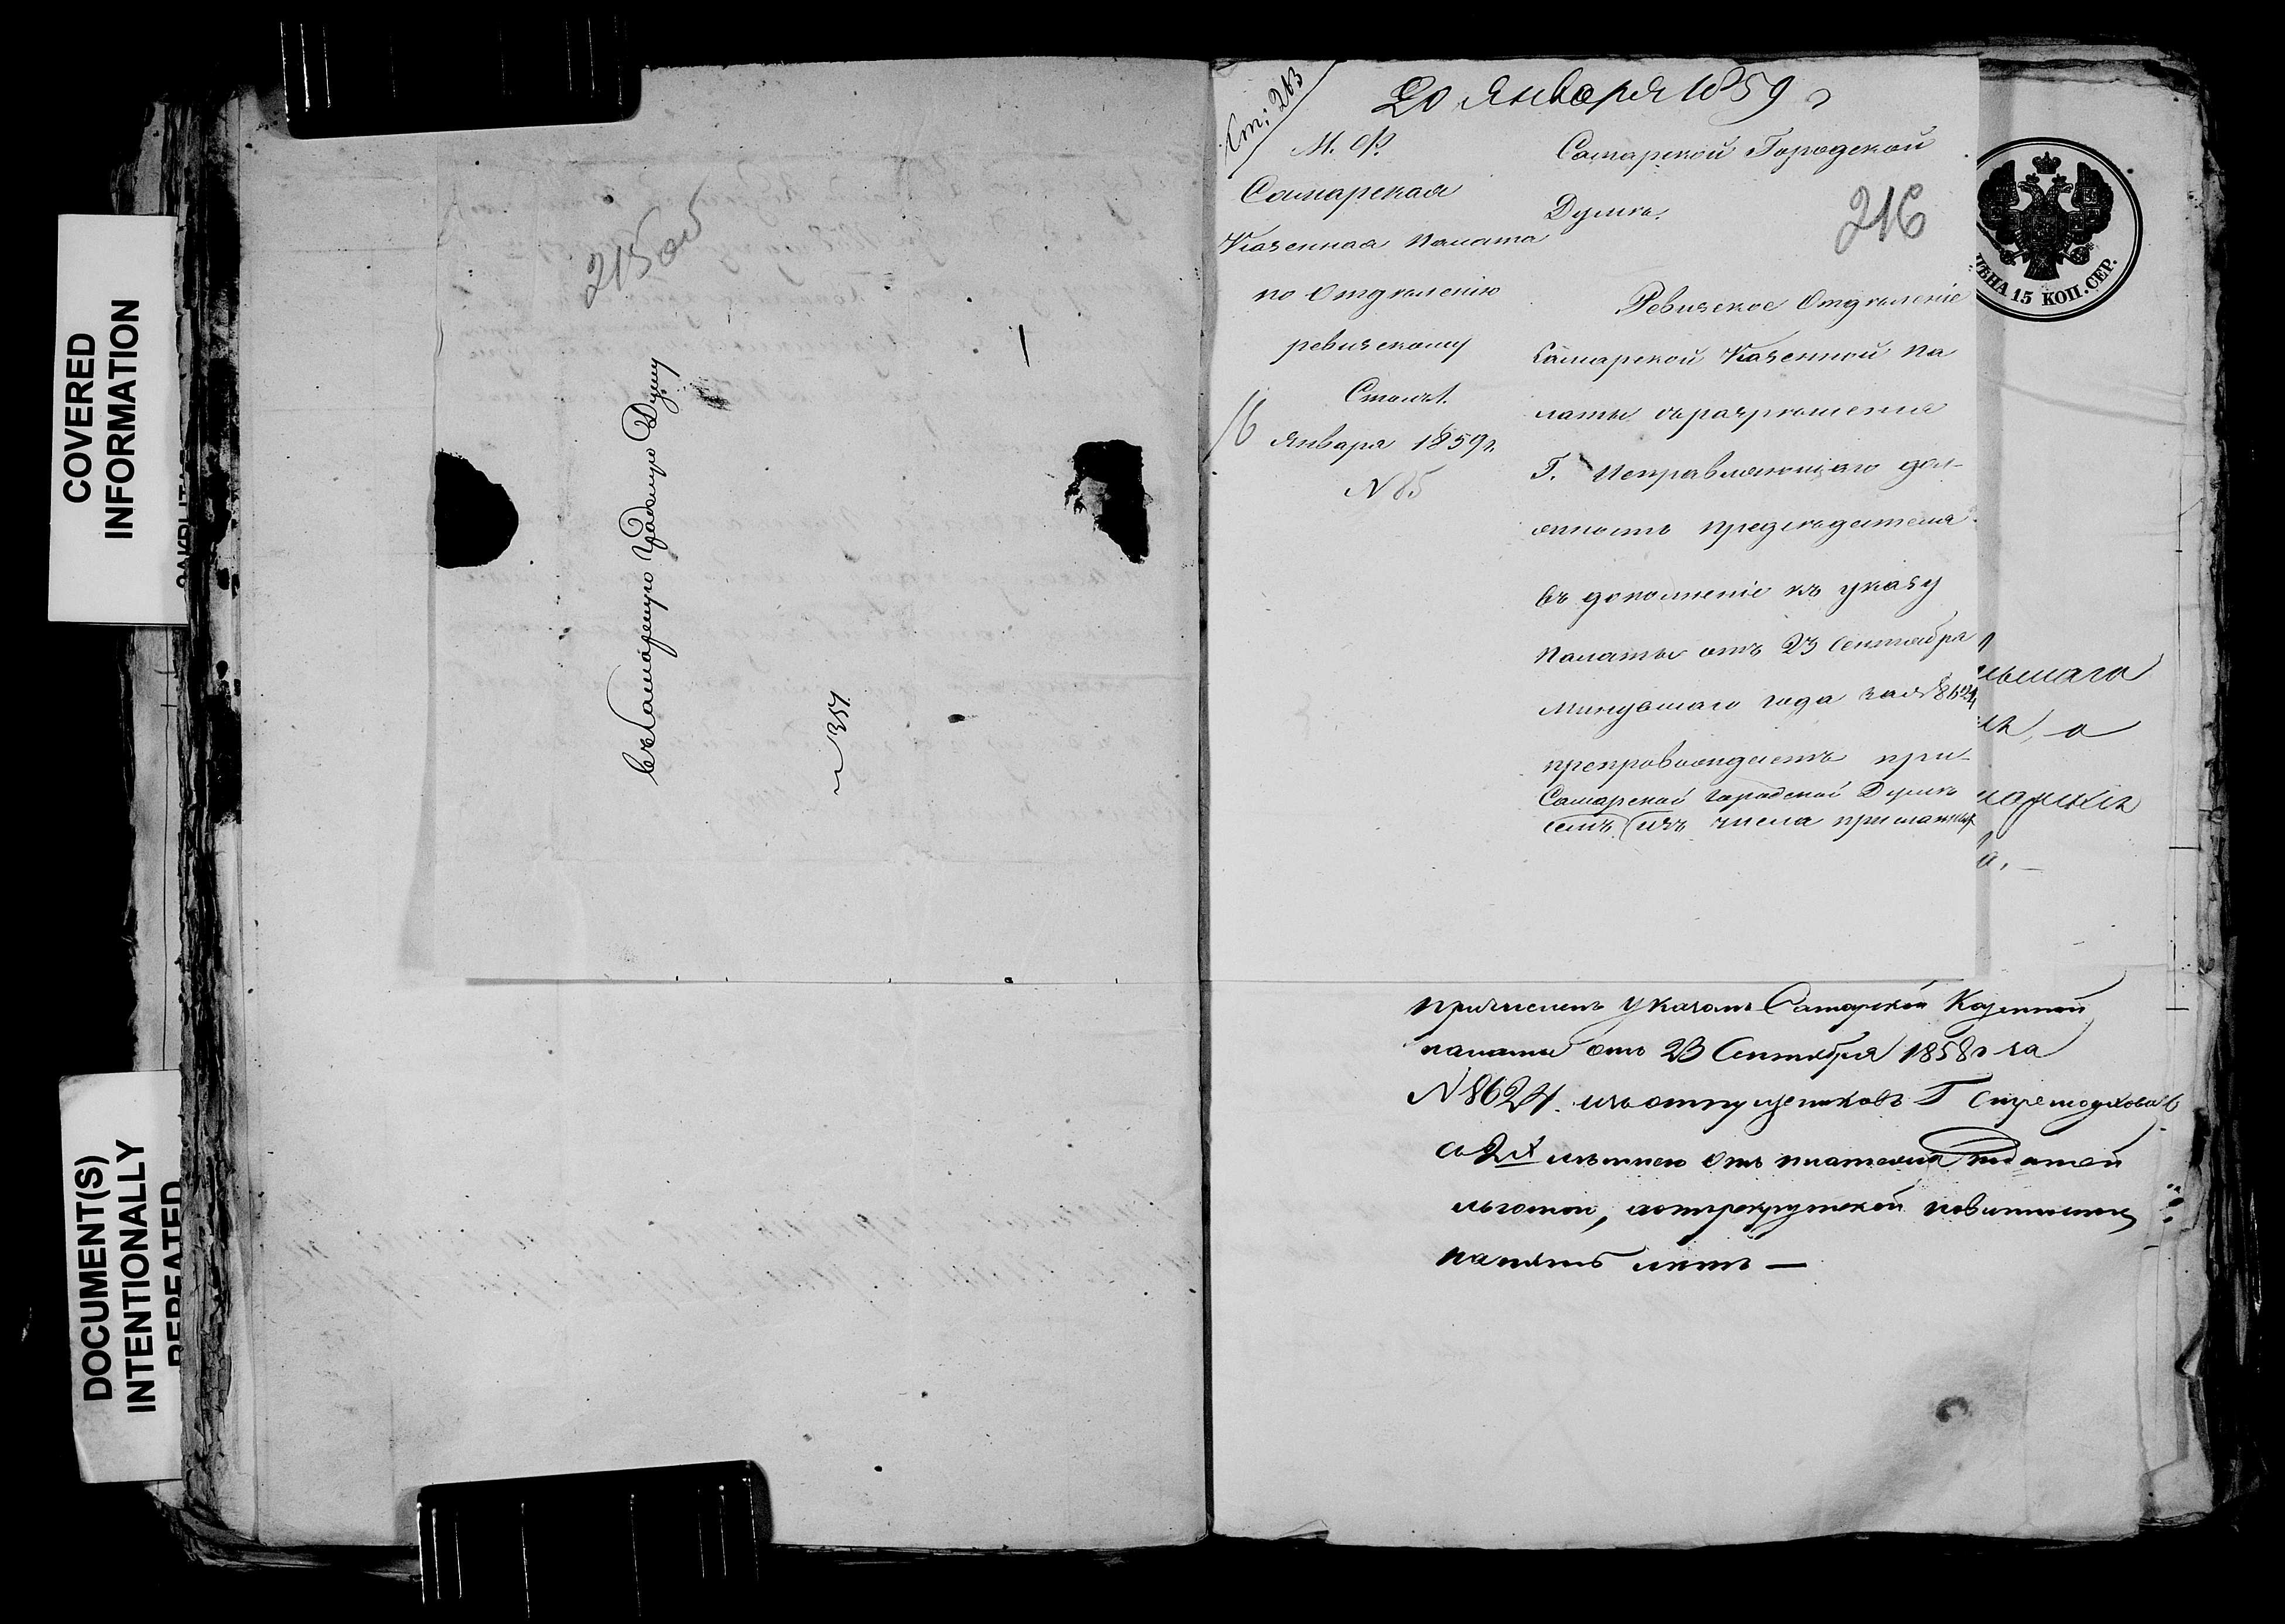 COVERED
INFORMATION
DOCUMENT(S)
INTENTIONALLY
REPEATED
215 об
Въ Самарскую Градскую Думу
№ 357
Ст: 213
20 Января 1859 г
М. Ф.
Самарская
Казенная Палата
по Отдѣленію
ревизскому
Столъ 1.
16 Января 1859 г.
N 85
Самарской Городской
Думѣ.
216
ЦѢНА 15 КОП. СЕР.
Ревизское Отдѣленіе
Самарской Казенной Па
латы съ разрѣшенія
Г. Исправляющаго дол-
жность предсѣдателя
въ дополненіе къ указу
Палаты отъ 23 Сентября
минувшаго года за № 8624
препровождаетъ при-
Самарской Городской Думѣ
семъ (изъ числа присланныхъ
причисленъ Указомъ Самарской Казенной
палаты отъ 23 Сентября 1858 г за
N 8624. изъ отпущениковъ Г
съ 2х лѣтнею отъ платежа податей
льготою, а отъ рекрутской повинности
на пять лѣтъ —